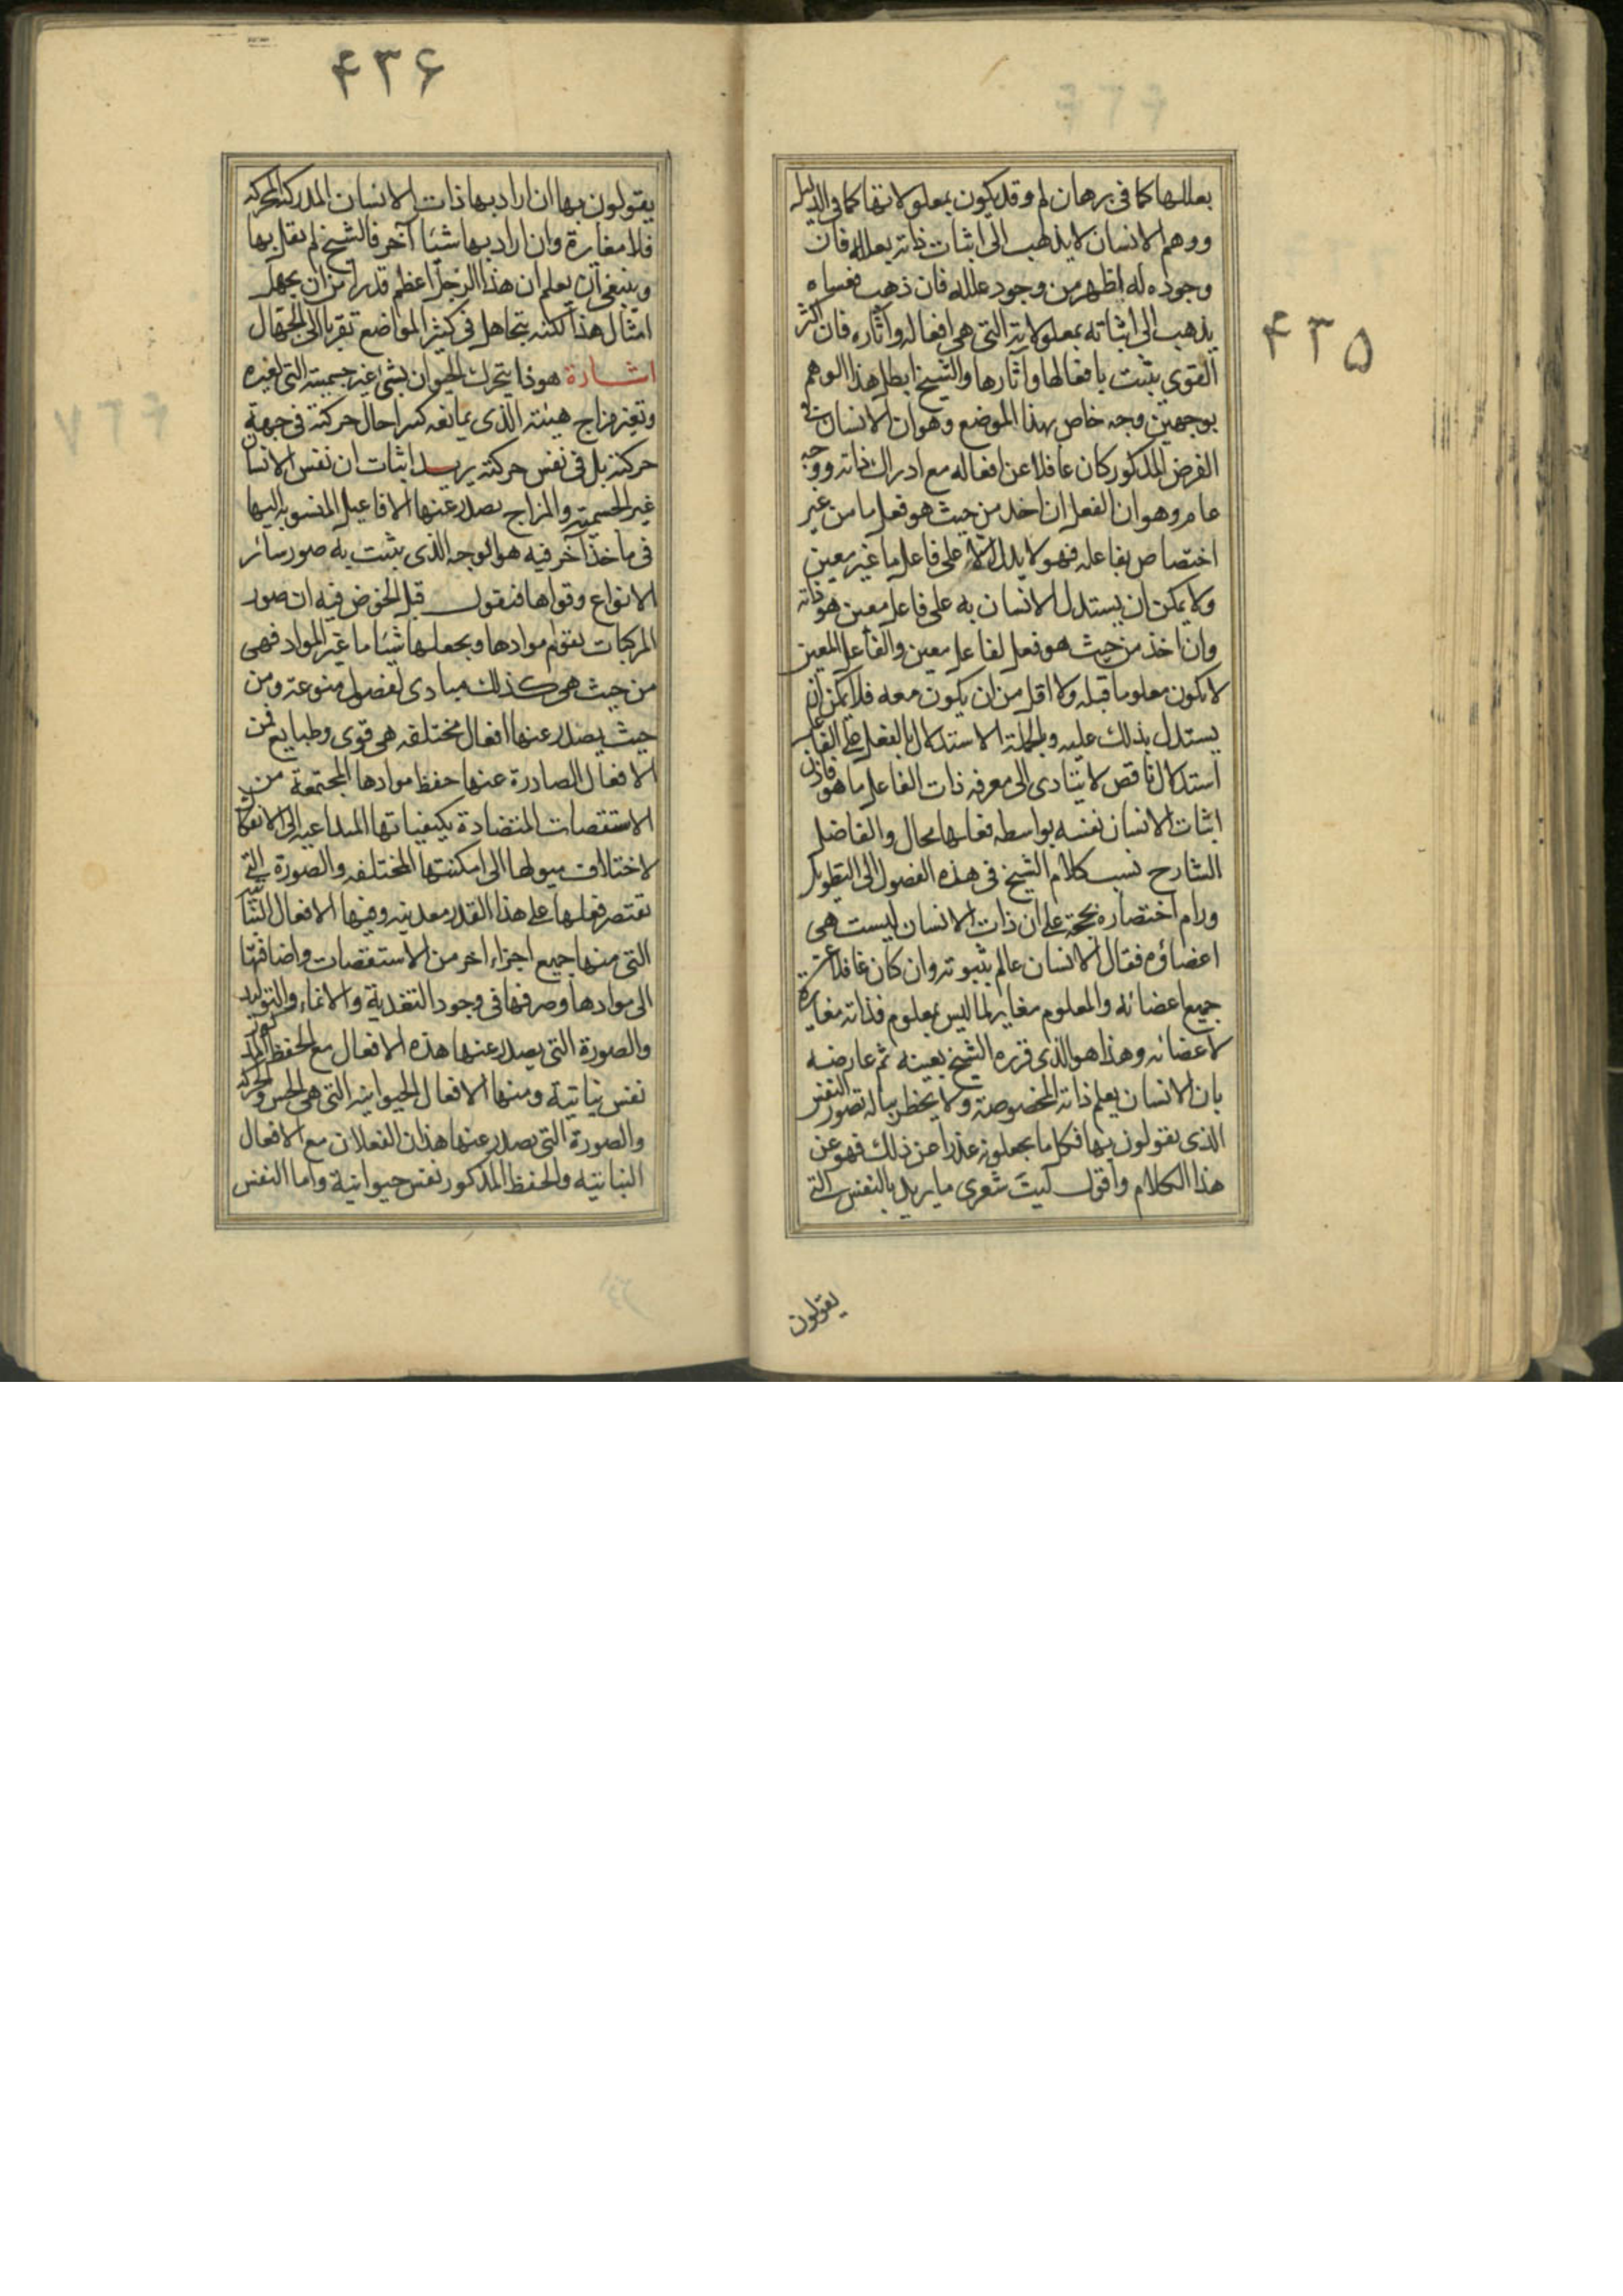 ۴۳۵
بعللها كما فى برهان لم وقد يكون بمعلولاتها كما فى الدليل
ووهم الانسان لا يذهب الى اثبات ذاته بعلله فان
وجوده له اظهر من وجود علله فان ذهب فعساه
يذهب الى اثباته بمعلولاته التى هى افعاله وآثاره فان اكثر
القوى يثبت بافعالها وآثارها والشيخ ابطل هذا الوهم
بوجهين وجه خاص بهذا الموضع وهو ان الانسان فى
الفرض المذكور كان غافلا عن افعاله مع ادراك ذاته ووجه
عام وهو ان الفعل ان اخذ من حيث هو فعل ما من غير
اختصاص بفاعله فهو لا يدل الا على فاعل ما غير معين
ولا يمكن ان يستدل الانسان به على فاعل معين هو ذاته
وان اخذ من حيث هو فعل لفاعل معين والفاعل المعين
لا يكون معلوما قبله ولا اقل من ان يكون معه فلا يمكن ان
يستدل بذلك عليه وبالجملة الاستدلال بالفعل على الفاعل
استدلال ناقص لا يتادى الى معرفه ذات الفاعل ما هو فاذن
اثبات الانسان نفسه بواسطه فعلها محال والفاضل
الشارح نسب كلام الشيخ فى هذه الفصول الى التطويل
ورام اختصاره بحجة على ان ذات الانسان ليست هى
اعضاؤه فقال الانسان عالم بثبوته وان كان غافلا عن
جميع اعضائه والمعلوم مغاير لما ليس بمعلوم فذاته مغايرة
لاعضائه وهذا هو الذى قرره الشيخ بعينه ثم عارضه
بان الانسان يعلم ذاته المخصوصة ولا يخطر بباله تصور النفس
الذى يقولون بها فكل ما يجعلونه عذرا عن ذلك فهو عن
هذا الكلام واقول ليت شعرى ما يريد بالنفس التى
يقولون
۴۳۶
يقولون بها ان اراد بها ذات الانسان المدركة المحركة
فلا مغايرة وان اراد بها شيئا آخر فالشيخ لم يقل بها
وينبغى ان يعلم ان هذا الرجل اعظم قدرا من ان يجهل
امثال هذا لكنه يتجاهل فى كثير المواضع تقربا الى الجهال
اشارة هو ذا يتحرك الحيوان بشئ غير جسميته التى لغيره
وبغير مزاج هيئته الذى يمانعه كثيرا حال حركته فى جهة
حركته بل فى نفس حركته يريد اثبات ان نفس الانسان
غير الجسمية والمزاج يصدر عنها الافاعيل المنسوبه اليها
فى ماخذ آخر فيه هو الوجه الذى يثبت به صور سائر
الانواع وقواها فنقول قبل الخوض فيه ان صور
المركبات يقوم موادها ويجعلها شيئا ما غير المواد فهى
من حيث هى كذلك مبادى لفصول منوعة ومن
حيث يصدر عنها افعال مختلفه هى قوى وطبايع فمن
الافعال الصادرة عنها حفظ موادها المجتمعة من
الاستقصات المتضادة بكيفياتها المتداعيه الى الانفكاك
لاختلاف ميولها الى امكنتها المختلفه والصورة التى
تقتصر فعلها على هذا القدر معدنيه ومنها الافعال النباتية
التى منها جميع اجزاء اخر من الاستقصات واضافتها
الى موادها وصرفها فى وجود التغذية والانماء والتوليد
والصورة التى يصدر عنها هذه الافعال مع الحفظ المذكور
نفس نباتية ومنها الافعال الحيوانيه التى هى الحس والحركة
والصورة التى يصدر عنها هذان الفعلان مع الافعال
النباتيه والحفظ المذكور نفس حيوانية واما النفس